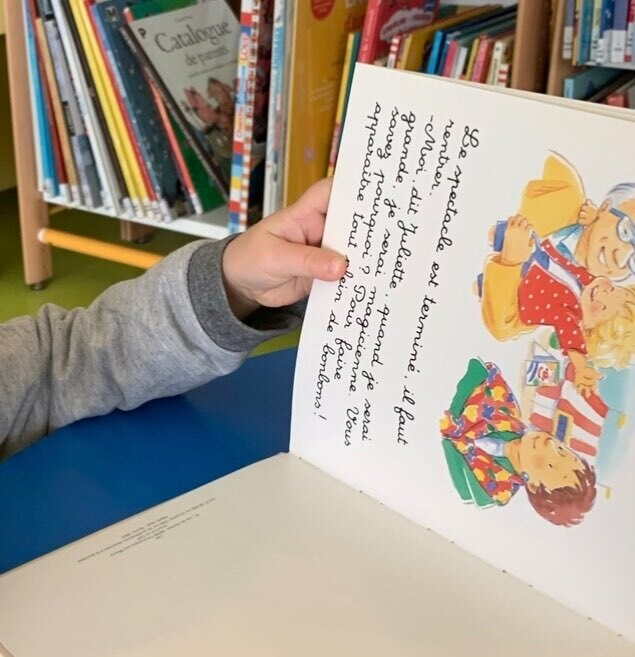 Catalogue
de parents
Le spectacle est terminé, il faut
rentrer.
-Moi, dit Juliette, quand je serai
grande, je serai magicienne. Vous
savez pourquoi? Pour faire
apparaître tout plein de bonbons!